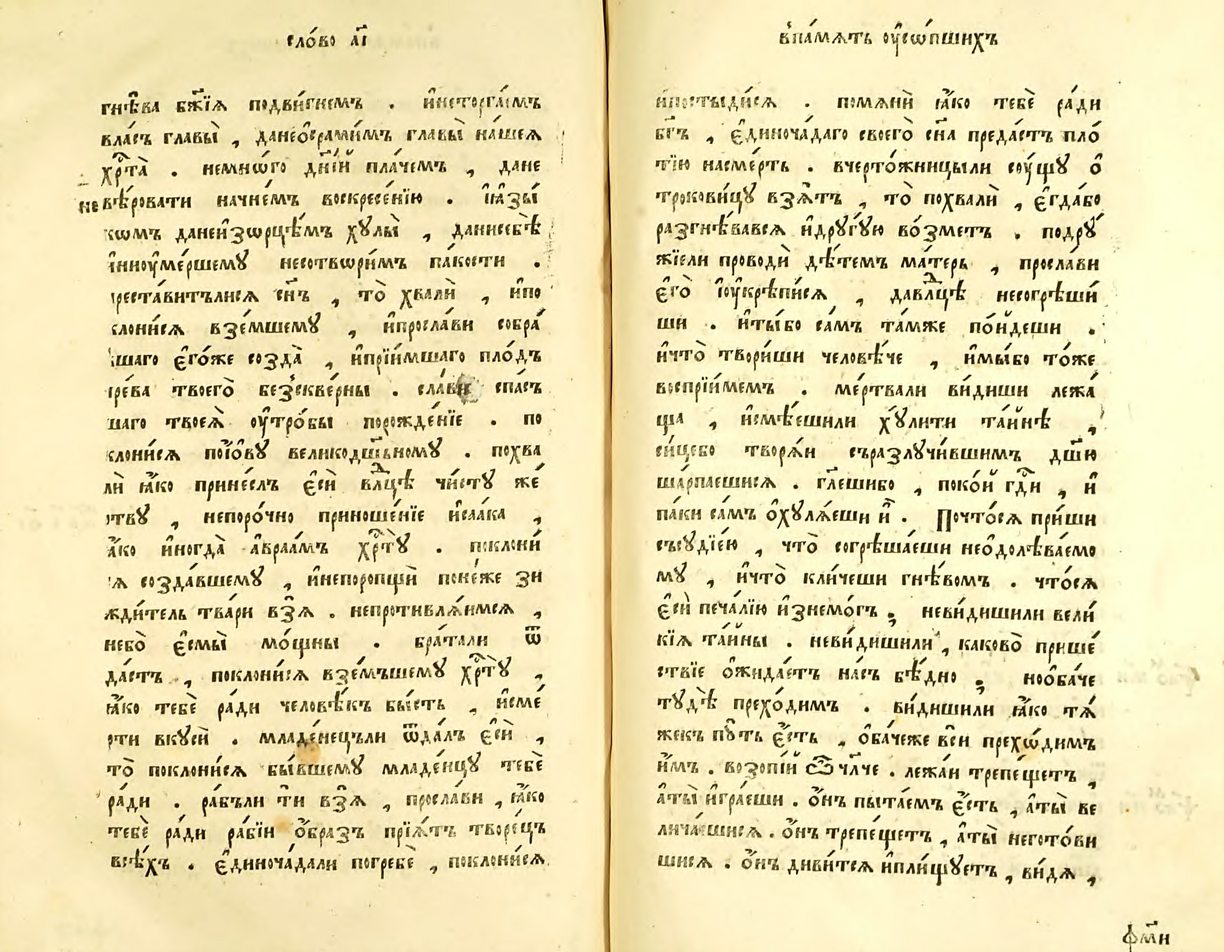 сло́во а҃і
гнѣ́ва бж҃їѧ подви́гнемъ . и҆неторга́имъ
вла́съ главы̀ , данеѻ҆срами́мъ главы̀ на́шеѧ
хрⷭ҇та̀ . немно́го дні́й пла́чемъ , дане
невѣ́ровати начне́мъ воскресе́нїю . і҆ꙗ҆зы́
комъ данеи҆зѡрце́мъ хꙋлы̀ , данисебѣ̀
и҆ниоу҆ме́ршемꙋ несотвори́мъ па́кости .
преста́витълисѧ сн҃ъ , то̀ хвалѝ , и҆по
клони́сѧ взе́мшемꙋ , и҆просла́ви собра́
вшаго є҆го́же созда̀ , и҆прїи́мшаго пло́дъ
чре́ва твоего̀ безскве́рны . сла́ви спа́съ
шаго твоеѧ̀ оу҆тро́бы порожде́нїе . по
клони́сѧ поі҆́овꙋ великодш҃ьномꙋ . похва
лѝ ꙗ҆́ко прине́слъ є҆сѝ влⷣцѣ чи́стꙋ же́
ртвꙋ , непоро́чно приноше́нїе и҆саа́ка ,
ꙗ҆́ко и҆ногда̀ а҆враа́мъ хрⷭ҇тꙋ̀ . поклони́
сѧ созда́вшемꙋ , и҆непоропщѝ поне́же зи
жди́тель тва́ри взѧ̀ . непротивлѧ́имсѧ ,
небо̀ є҆смы̀ мо́щны . бра́тали ѿ
да́стъ , поклони́сѧ взе́мъшемꙋ хрⷭ҇тꙋ̀ ,
ꙗ҆́ко тебѐ ра́ди человѣ́къ бы́сть , и҆сме́
рти вкꙋсѝ . младе́нецъли ѿда́лъ є҆сѝ ,
то̀ поклони́сѧ бы́вшемꙋ младе́нцꙋ тебѐ
ра́ди . ра́бъли ти взѧ̀ , просла́ви , ꙗ҆́ко
тебѐ ра́ди ра́бїи ѻ҆́бразъ прїѧ́тъ творе́цъ
всѣ́хъ . є҆диноча́дали погребѐ , поклони́сѧ
в҆па́мѧть оу҆со́пшихъ
и҆постыди́сѧ . помѧнѝ ꙗ҆́ко тебѐ ра́ди
бг҃ъ , є҆диноча́даго своего̀ сн҃а преда́стъ пло́
тїю насме́рть . вчерто́жницыли сꙋ́щꙋ ѻ҆
трокови́цꙋ взѧ́тъ , то̀ похвалѝ , є҆гда́бо
разгнѣ́вавсѧ и҆дрꙋгꙋ́ю во́зметъ . подрꙋ́
жїели проводѝ дѣ́темъ ма́терь , просла́ви
є҆го̀ і҆оу҆крѣпи́сѧ , давлⷣцѣ несогрѣши́
ши . и҆ты́бо са́мъ та́мже по́йдеши .
и҆что̀ твори́ши человѣ́че , и҆мы́бо то́же
воспрїи́мемъ . ме́ртвали ви́диши лежа́
ща , и҆смѣ́ешили хꙋ́лити та́йнѣ ,
си́цебо творѧ́и съразлꙋчи́вшимъ дш҃ю
ша́рпаешисѧ . гл҃ешибо , поко́й гдⷭ҇и , и҆
па́ки са́мъ ѻ҆хꙋлѧ́еши и҆̀ . Почто́сѧ при́ши
съсꙋдїе́ю , что̀ согрѣша́еши неѻ҆долѣва́емо
мꙋ , и҆что̀ кли́чеши гнѣ́вомъ . что́сѧ
є҆сѝ печа́лїю и҆знемо́гъ ; неви́дишили вели
кїѧ та́йны . неви́дишили , каково̀ прише́
ствїе ѻ҆жида́етъ на́съ бѣ́дно ; ноѻ҆ба́че
тꙋ́дѣ прехо́димъ . ви́дишили ꙗ҆́ко тѧ́
жекъ пꙋ́ть є҆́сть , ѻ҆ба́чеже всѝ прехо́димъ
и҆́мъ . возопі́й ѽ чл҃че . лежа́и трепе́щетъ ,
а҆ты̀ и҆гра́еши . ѻ҆́нъ пыта́емъ є҆́сть , а҆ты̀ ве
лича́ешисѧ . ѻ҆́нъ трепе́щетъ , а҆ты̀ негото́ви
шисѧ . ѻ҆́нъ диви́тсѧ и҆плищꙋ́етъ , ви́дѧ ,
фм҃и